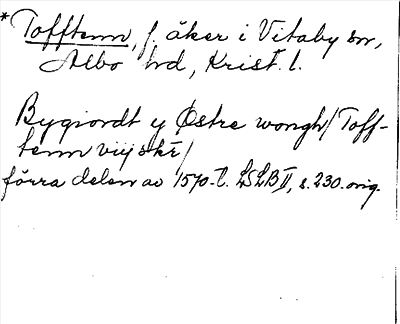 * Tofftenn, f. åker i Vitaby sn,
Albo hd, Krist. l.
Bygiordt y Østre wongh/Toff-
tenn viij skr/
förra delen av 1570-t. LSLB II, s. 230. orig.